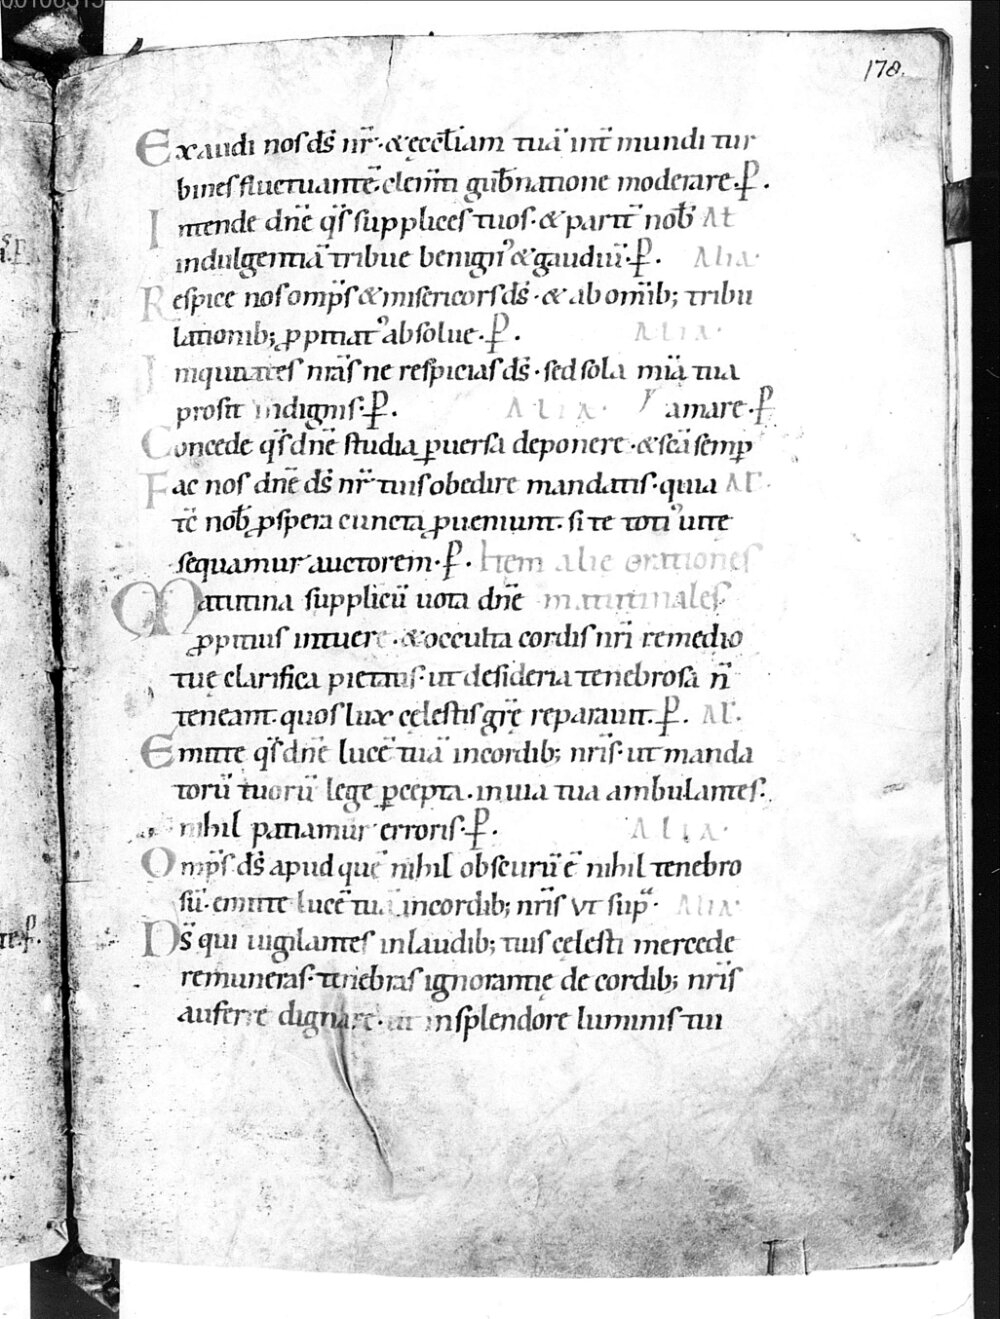 178.
Exaudi nos ds̄ nr̄ · & ęccl̄iam tuā int̄ mundi tur
bines fluctuantē. clem̄ti gub̄natione moderare. P̱ .
Intende dn̄e q̄s supplices tuos · & parit̄ nob̄ Al
indulgentiā tribue benign' & gaudiū · P̱ . Alia ·
Respice nos omp̄s & misericors ds̄ · & ab omīb; tribu
lationib; ꝓpitiat' absolue · P̱ . ALIA ·
Iniquitates nr̄as ne respicias ds̄ · sed sola mīa tua
prosit indignis · P̱ . ALIA · amare · P̱
Concede q̄s dn̄e studia ꝑuersa deponere · & scā semꝑ
Fac nos dn̄e ds̄ nr̄ tuis obedire mandatis · quia AL ·
tc̄ nob̄ ꝓspera cuncta ꝓueniunt. si te toti' uite
sequamur auctorem · P̱ . Item alie orationes
Matutina supplicū uota dn̄e matutinales
ꝓpitius intuere · & occulta cordis nr̄i remedio
tuę clarifica pietatis · ut desideria tenebrosa n̄
teneant. quos lux cęlestis gr̄ę reparauit. P̱ . AL ·
Emitte q̄s dn̄e lucē tuā incordib; nr̄is · ut manda
torū tuorū lege ꝑcepta · in uia tua ambulantes ·
nihil patiamur erroris · P̱ . ALIA ·
Omp̄s ds̄ apud quē nihil obscurū ē nihil tenebro
sū · emitte lucē tuā incordib; nr̄is ut sup̄ · ALIA ·
Ds̄ qui uigilantes inlaudib; tuis cęlesti mercede
remuneras · tenebras ignorantię de cordib; nr̄is
auferre dignare · ut insplendore luminis tui